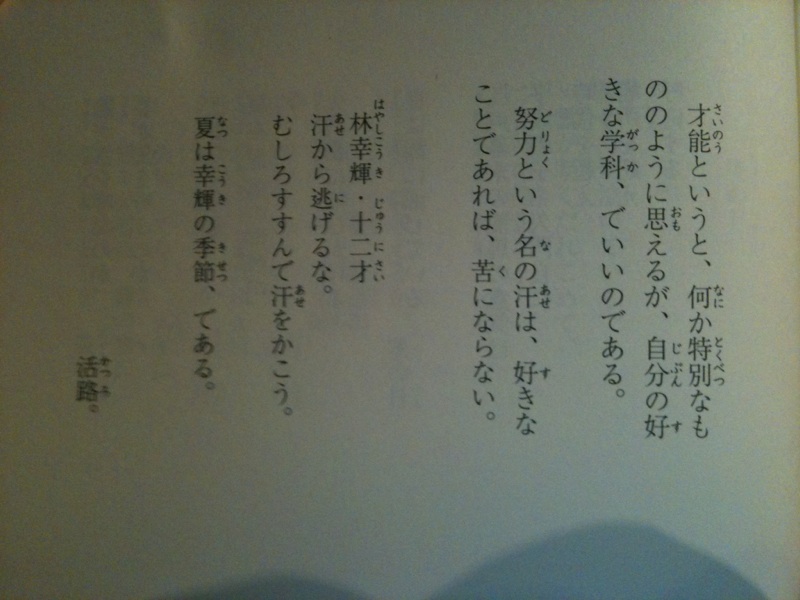 才能というと、何か特別なも
ののように思えるが、自分の好
きな学科、でいいのである。
努力という名の汗は、好きな
ことであれば、苦にならない。
林幸輝・十二才
汗から逃げるな。
むしろすすんで汗をかこう。
夏は幸輝の季節、である。
活路。